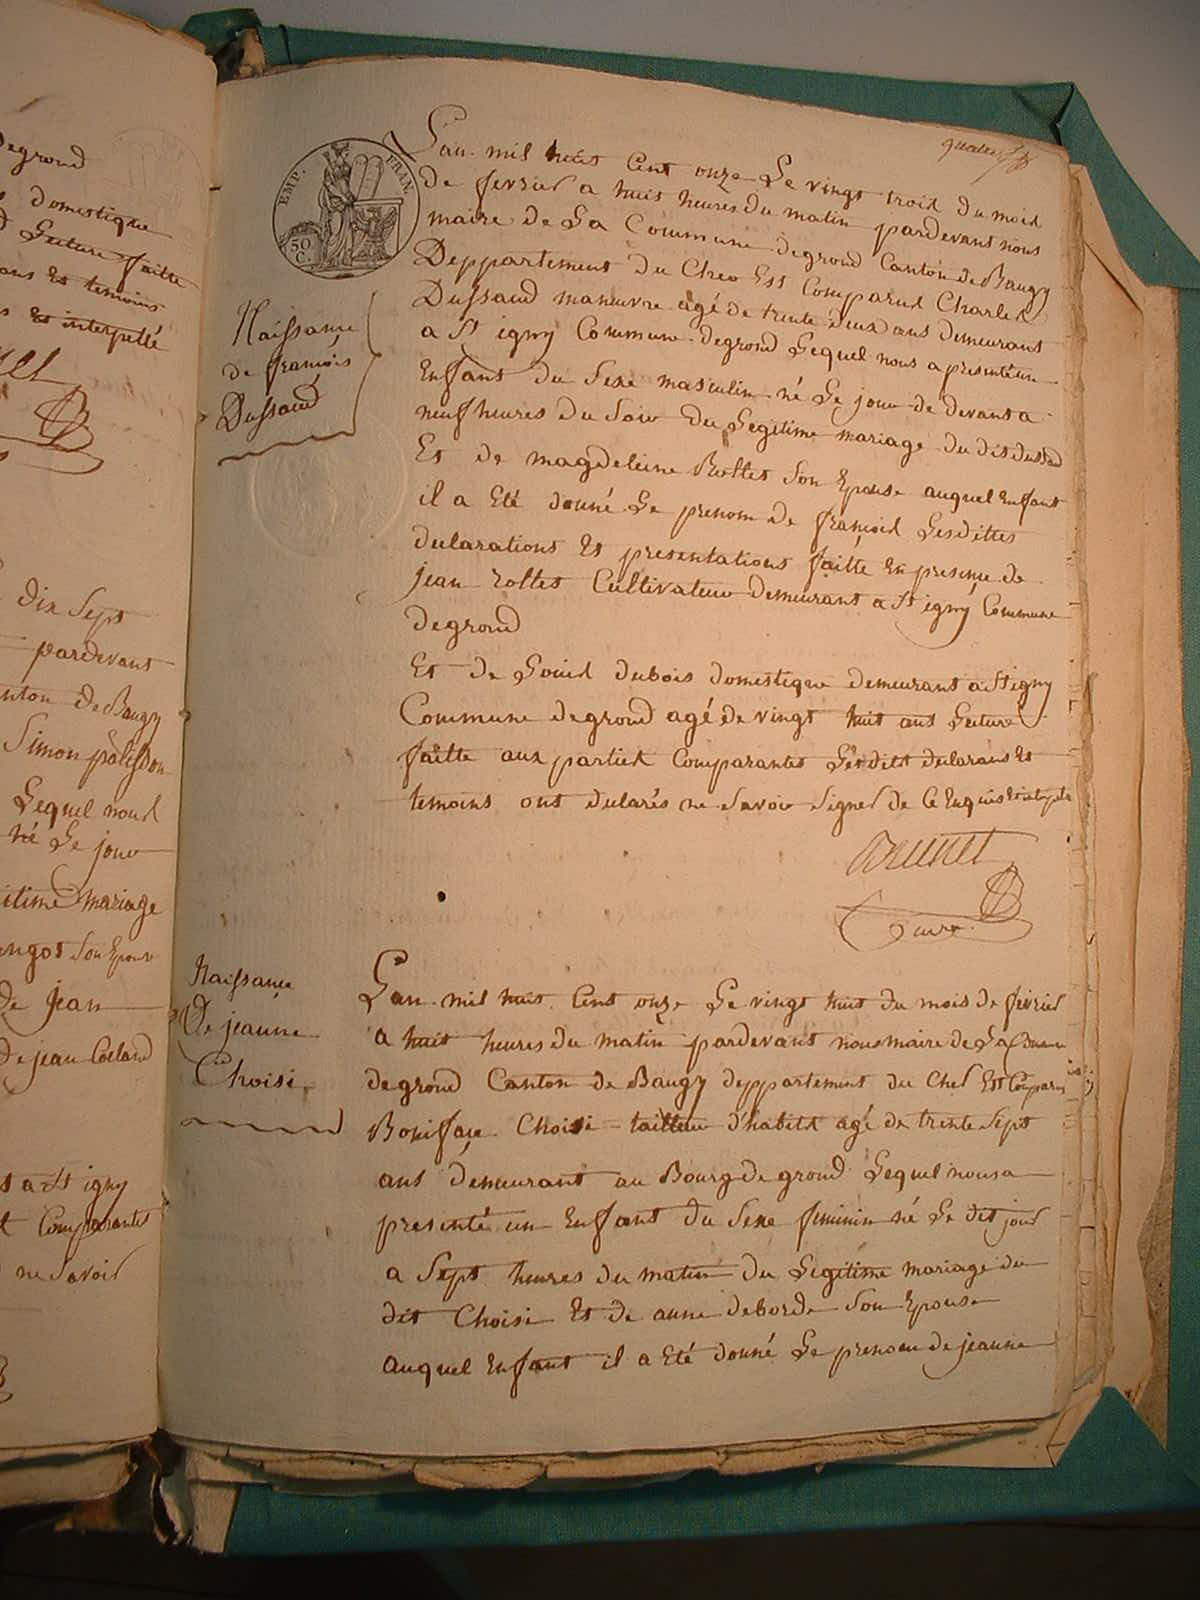 Degroud
domestique
Lecture faitte
ans Et temoins
Et interpellé
dix Sept
pardevant
Canton de Baugy
Simon pôlisson
Lequel nous
né Le jour
itime mariage
Son Epouse
De jean
De jean
a St igny
Comparantes
ne Savoir
EMP. FRAN.
50 C.
Naissance
de françois
Dussaud
L'an mil huit Cent onze Le vingt trois du mois
De fevrier a huit heures du matin pardevant nous
maire de La Commune degroud Canton de Baugy
Deppartement du Cher Est Comparus Charles
Dussaud manœuvre agé de trente deux ans demeurant
a St igny Commune degroud Lequel nous a presentéun
Enfant du Sexe masculin né Le jour de devant a
neuf heures du Soir du Legitime mariage du dit dussaud
Et de magdeleine Rottet Son Epouse auquel Enfant
il a Eté donné Le prenom de françois Lesdittes
declarations Et presentations faitte En presence de
jean rottet Cultivateur demeurant a St igny Commune
degroud
Et de Louis dubois domestique demeurant a St igny
Commune degroud agé de vingt huit ans Lecture
faitte aux parties Comparantes Lesdits declarans Et
temoins ont declarés ne Savoir Signer de Ce Enquis Et interpelé
Brunet
maire
Naissance
De jeanne
Choisi
L'an mil huit Cent onze Le vingt huit du mois de fevrier
a huit heures du matin pardevant nous maire de La Commune
degroud Canton de Baugy deppartement du Cher Est Comparus
Boniface Choisi tailleur d'habits agé de trente Sept
ans demeurant au Bourg de groud Lequel nous a
presenté un Enfant du Sexe feminin né Le dit jour
a Sept heures du matin du Legitime mariage du
dit Choisi Et de anne deborde Son Epouse
auquel Enfant il a Eté donné Le prenom de jeanne